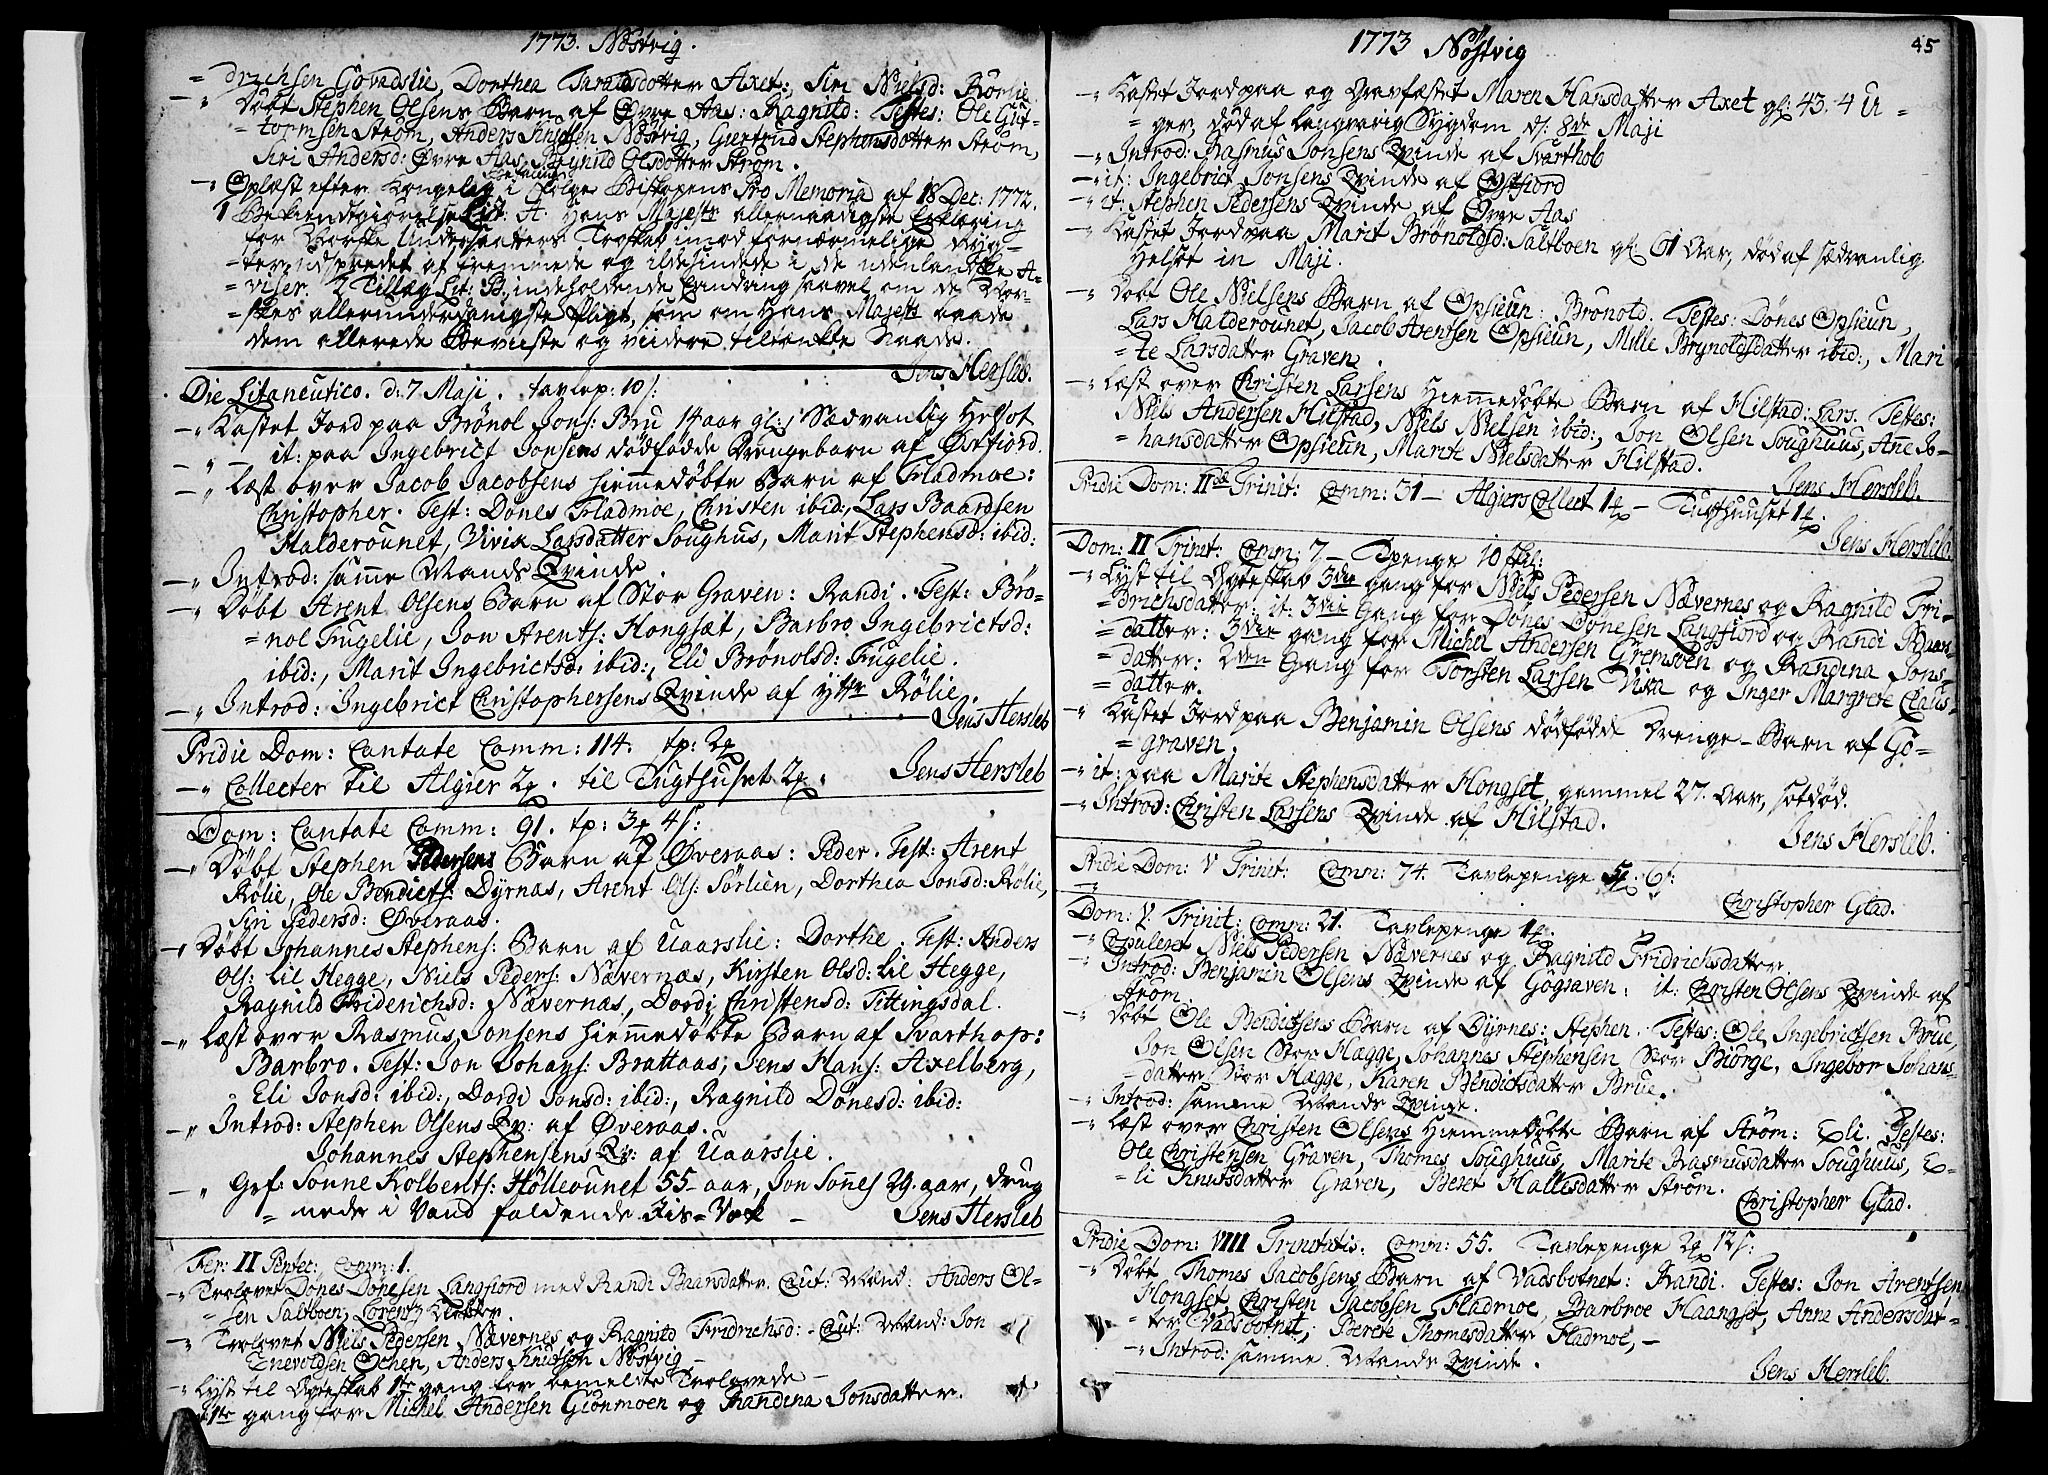 1773. Nøstvig.
= drichsen Govadslie, Dorthea Taraldsdotter Axet:, Siri Nielsd: Rörlie
-" Döbt Stephen Olsens Barn af Øvre Aas: Ragnild: Testes: Ole Gut-
= tormsen Strøm, Anders Knudsen Nöstvig, Giertrud Stephensdotter Strøm,
Siri Andersd: Øvre Aas, Ragnild Olsdotter Strøm.
-" Oplæst efter Kongelig Befaling i Følge Biskopens Pro Memoria af 18 Dec: 1772.
1 Bekiendtgiørelse Lit: A. Hans Majests allernaadigste Erklæring
for Norske Undersaatters Troskab imod fornærmelige Ryg-
-ter udspredet af fremmede og ildesindede i de udenlandske A-
= viser. 2 Tillæg Lit: B. indeholdende saavel om de Nor-
= skes allerunderdanigste Pligt, som om Hans Majests baade
dem allerede Beviiste og viidere tiltænkte Naade.
Jens Hersleb.
Die Litaneutico. d: 7 Maji. tavlep: 10 s:
-" Kastet Jord paa Brönol Jons: Bru 14 aar gl:, Sædvanlig Helsot
-" - it: paa Ingebrict Jonsens dödfödde Drengebarn af Østfiord.
-" Læst over Jacob Jacobsens hiemmedöbte Barn af Fladmoe:
Christopher. Test: Dönes Fladmoe, Christen ibid:, Lars Baardsen
Halderounet, Vivik Larsdatter Soughus, Marit Stephensd: ibid:
-" Introd: samme Mands Qvinde.
-" Döbt Arent Olsens Barn af Stor Graven: Randi. Test: Brö-
= nol Fugelie, Jon Arents: Hongsæt, Barbro Ingebrictsd:
ibid:, Marit Ingebrictsd: ibid:, Eli Brönolsd: Fugelie.
-" Introd: Ingebrict Christophersens Qvinde af ytre Rölie.
Jens Hersleb
Pridie Dom: Cantate Comm: 114. tp: 2
-" Collecter til Algier 2. til Tugthuset 2.
Jens Hersleb
Dom: Cantate Comm: 91. tp: 3 4 s:
-" Döbt Stephen Pedersens Barn af Øveraas: Peder. Test: Arent
Rölie, Ole Bendicts: Dyrnas, Arent Ols: Sörlien, Dorthea Jonsd: Rölie,
Siri Pedersd: Øveraas.
-" Döbt Johannes Stephens: Barn af Uaarslie: Dorthe. Test: Anders
Ols: lil Hegge, Niels Peders: Nævernas, Kirsten Olsd: lil Hegge,
Ragnild Friderichsd: Nævernas, Dordi Christensd: Fittingsdal.
-" Læst over Rasmus Jonsens hiemmedöbte Barn af Svarthop:
Barbro. Test: Jon Johans: Brattaas, Jens Hans: Axelberg,
Eli Jonsd: ibid:, Dordi Jonsd: ibid:, Ragnild Dönesd: ibid:
-" Introd: Stephen Olsens Qv: af Øveraas.
Johannes Stephensens Qv: af Uaarslie.
-" Grf: Sonne Kolbents: Hölleounet 55 aar, Jon Sönes 29. aar, drug
= nede i Vand faldende Iis=Vok -
Jens Hersleb
Fer: II Pentec: Comm: 1.
-" Trolovet Dönes Dönesen Langfiord med Randi Baarsdatter. Caut: Mænd: Anders Ol-
= sen Saltboen, Lorentz
-" Trolovet Niels Pedersen Nævernes og Ragnild Fridrichsd: Caut: Mænd: Jon
Enevoldsen Ochen, Anders Knudsen Nöstvig -
-" Lyst til Ægteskab 1te gang for bemeldte Trolovede -
1te gang for Michel Andersen Grönmoen og Randina Jonsdatter.
1773 Nøstvig
45
-" Kastet Jord paa og Gravfæstet Maren Hansdatter Axet gl: 43. 4 U =
= ger, död af langvarig Sygdom d: 8de Maji
-" Introd: Rasmus Jonsens Qvinde af Svarthob
-" it: Ingebrict Jonsens Qvinde af Østfiord
-" it: Stephen Pedersens Qvinde af Øvre Aas
-" Kastet Jord paa Marit Brönoldsd: Saltboen gl: 61 Aar, död af sædvanlig
Helsot in Maji.
-" Döbt Ole Nielsens Barn af Opsieun: Brönold. Testes: Dönes Opsieun,
Lars Halderounet, Jacob Arentsen Opsieun, Mille Brynoldsdatter ibid:, Mari
= te Larsdatter Graven.
-" Læst over Christen Larsens hiemmedöbte Barn af Hilstad: Lars. Testes:
Niels Andersen Hilstad, Niels Nielsen ibid:, Jon Olsen Soughuus, Anne Jo-
= hansdatter Opsieun, Marite Nielsdatter Hilstad.
Jens Hersleb.
Pridie Dom: IIdæ Trinit: Comm: 31 - Algiers Collect 1 - Tugthuuset 1.
Jens Hersleb.
Dom: II Trinit: Comm: 7 - Tpenge 10 skl:
-" Lyst til Ægteskab 3die gang for Niels Pedersen Nævernes og Ragnild Fri-
= drichsdatter: it: 3die Gang for Dönes Dönesen Langfiord og Randi Baars-
= datter: 3die gang for Michel Andersen Gremsoen og Randina Jons-
= datter: 2den Gang for Torsten Larsen Vixa og Inger Margrete Claus-
= datter.
-" Kastet Jord paa Benjamin Olsens dödfödde Drenge-Barn af Gö-
= graven.
-" it: paa Marite Stephensdatter Hongset, gammel 27. Aar, sotdöd.
-" Introd: Christen Larsens Qvinde af Hilstad.
Jens Hersleb.
Pridie Dom: V Trinit: Comm: 74. Tavlepenge 5. 6 s:
Christopher Glad.
Dom: V. Trinit: Comm: 21. Tavlepenge 1.
-" Copuleret Niels Pedersen Nævernes og Ragnild Fridrichsdatter.
-" Introd: Benjamin Olsens Qvinde af Gögraven, it: Christen Olsens Qvinde af
Ström.
-" Döbt Ole Bendictsens Barn af Dyrnes: Stephen. Testes: Ole Ingebrictsen Brue,
Jon Olsen Stor Hægge, Johannes Stephensen Stor Biörge, Ingebor Johans-
= datter Stor Hægge, Karen Bendictsdatter Brue.
-" Introd: samme Mands Qvinde.
-" Læst over Christen Olsens hiemmedöbte Barn af Ström: Eli. Testes:
Ole Christensen Graven, Thomes Soughuus, Marite Rasmusdatter Soughuus, E-
= li Knutsdatter Graven, Beret Hallesdatter Ström.
Christopher Glad.
Pridie Dom: VIII Trinitatis. Comm: 55. Tavlepenge 2 12 s:
-" Döbt Thomes Jacobsens Barn af Vadsbotnet: Randi. Testes: Jon Arentsen
Hongset, Christen Jacobsen Fladmoe, Barbroe Haangset, Anne Andersdat-
= ter Vadsbotnet, Berete Thomesdatter Fladmoe, -
-" Introd: samme Mands Qvinde.
Jens Hersleb.